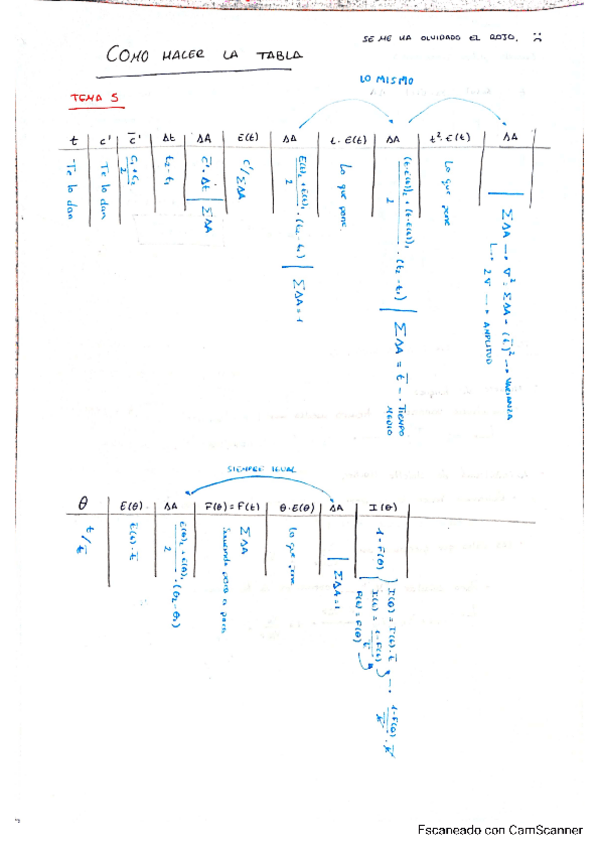 SE ME HA OLVIDADO EL ROJO. :(
COMO HACER LA TABLA
LO MISMO
TEMA 5
t | c' | c̅' | Δt | ΔA | E(t) | ΔA | t·E(t) | ΔA | t²·E(t) | ΔA
Te lo dan
Te lo dan
C₁+C₂/2
t₂-t₁
c̅'·Δt | ΣΔA
c'/ΣΔA
E(t)₂+E(t)₁/2 · (t₂-t₁) | ΣΔA=1
Lo que pone.
(t·E(t))₂+(t·E(t))₁/2 · (t₂-t₁) | ΣΔA = t̅ → TIEMPO MEDIO
Lo que pone
ΣΔA → ∇² = ΣΔA - (t̅)² → VARIANZA
↳ 2∇ → AMPLITUD
SIEMPRE IGUAL
θ | E(θ) | ΔA | F(θ)=F(t) | θ·E(θ) | ΔA | I(θ)
t/t̅
E(t)·t̅
E(θ)₂+E(θ)₁/2 · (θ₂-θ₁)
ΣΔA
Sumando paso a paso
Lo que pone
ΣΔA=1
1-F(θ)
I(θ)=I(t)·t̅
I(t)= 1-F(t)/t̅
F(t)=F(θ)
→ 1-F(θ)/t̅ · t̅
Escaneado con CamScanner